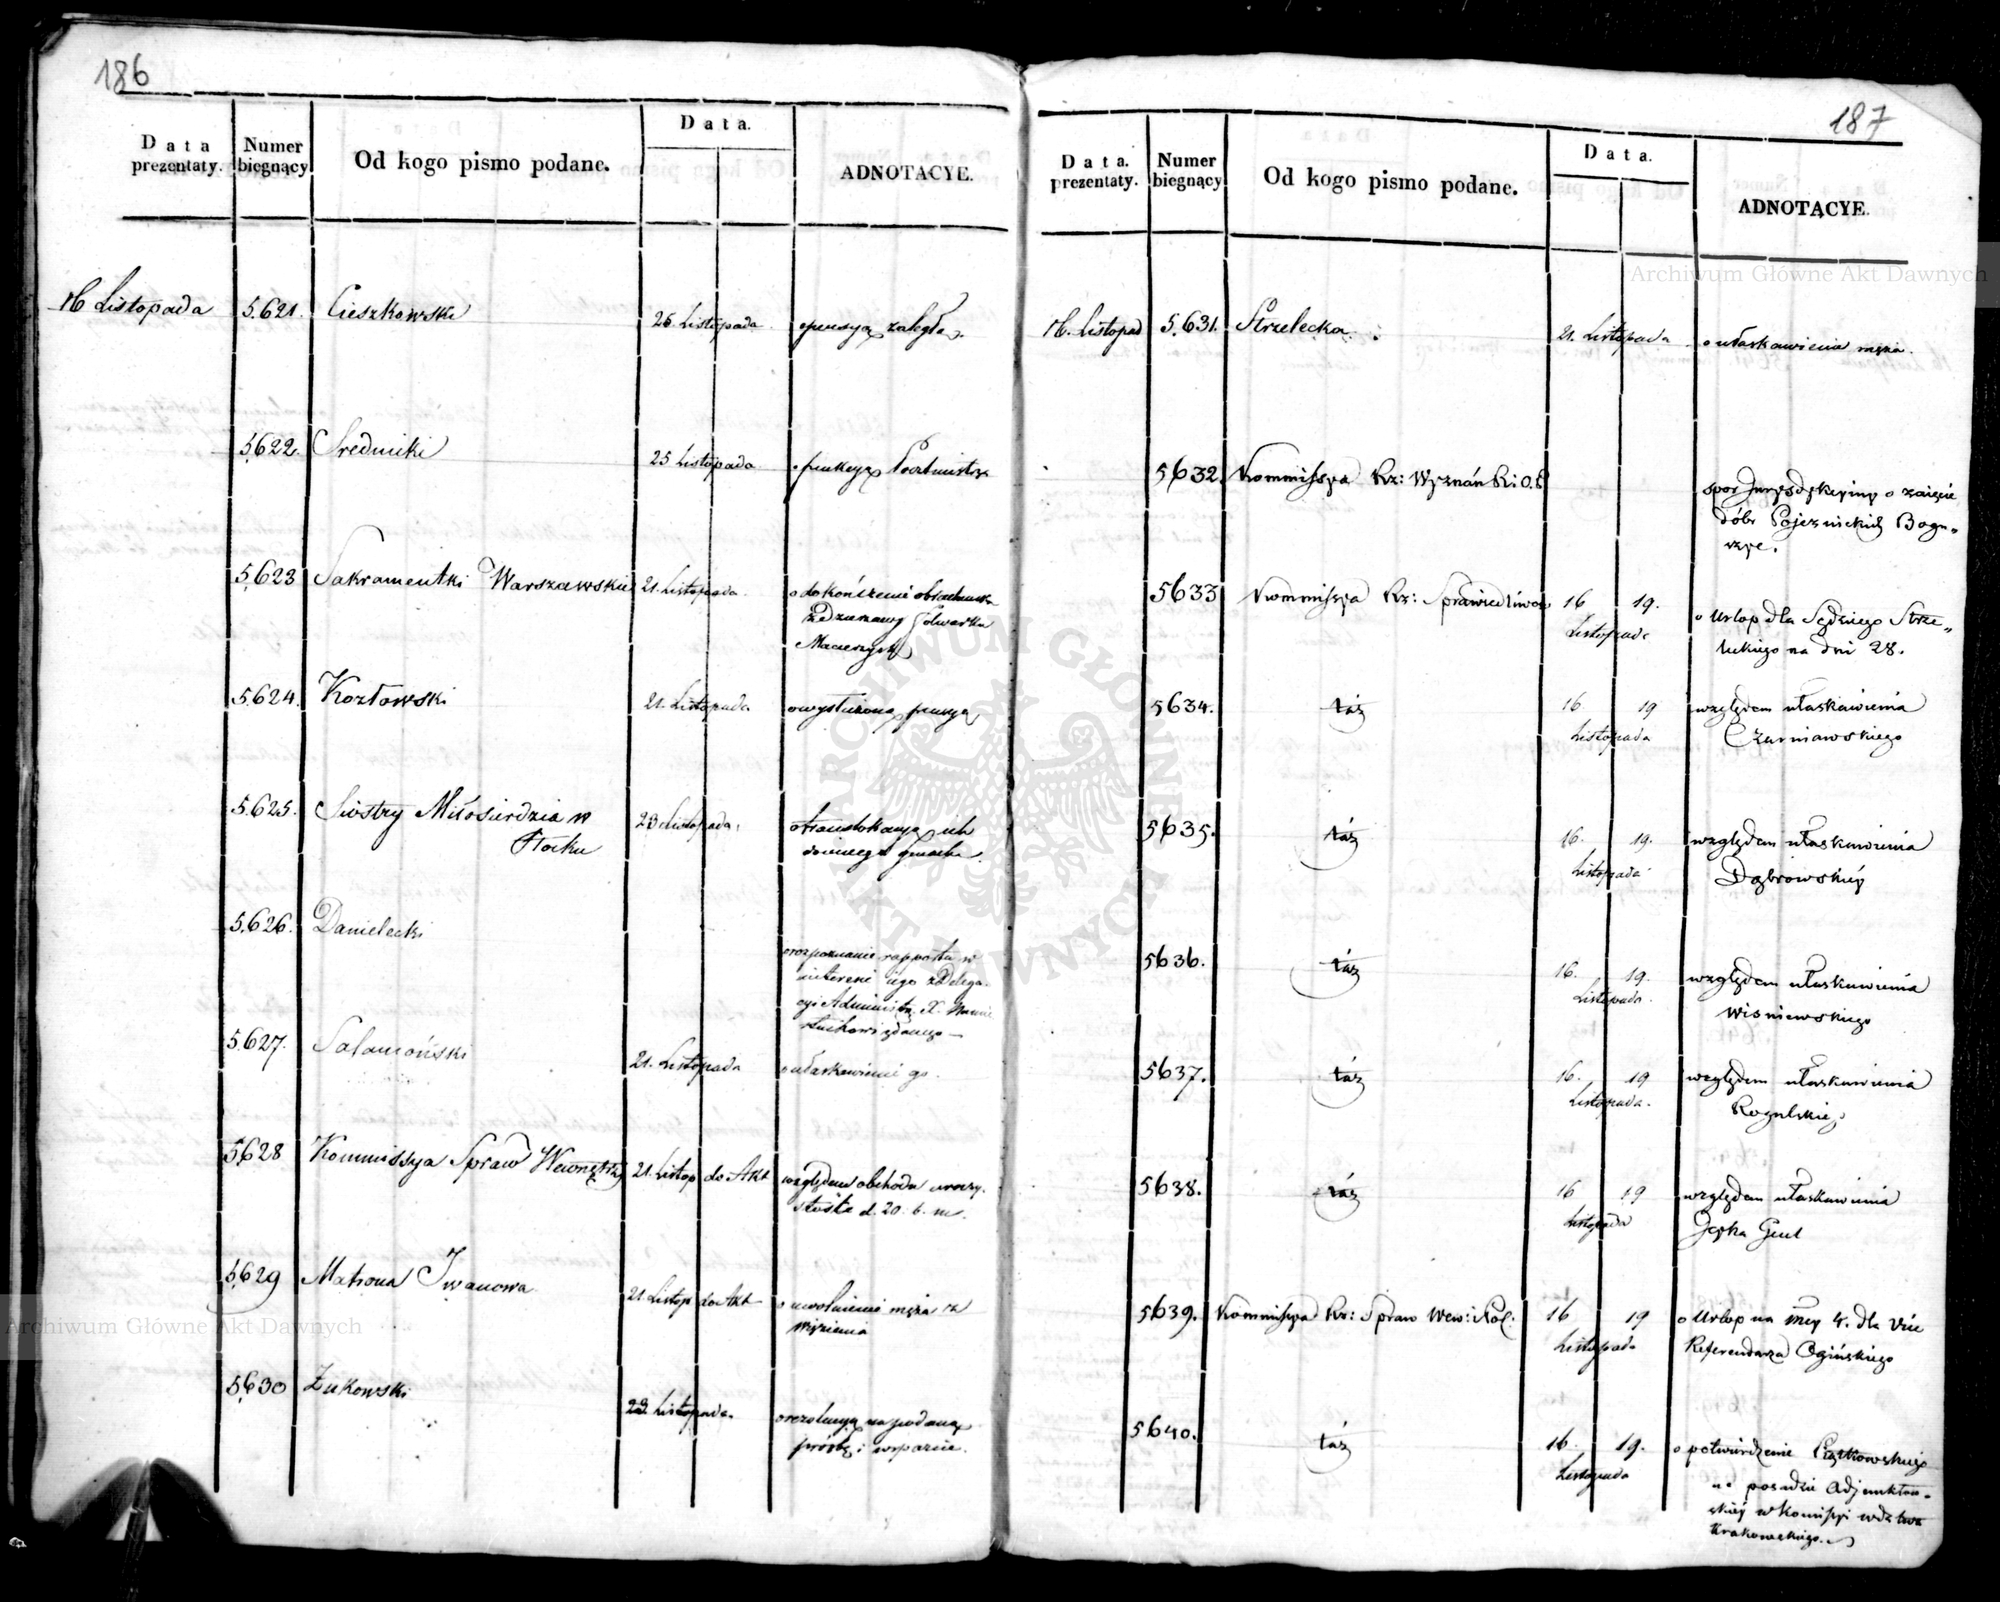 186
Data prezentaty.
Numer biegnący
Od kogo pismo podane.
Data.
ADNOTACYE.
16 Listopada 5.621. Cieszkowski 26. Listopada o pensyą zaległą.
5.622. Średnicki 25 Listopada o funkcyą Poczmistrza
5.623 Sakramentki Warszawskie 21. Listopada o dokończenie obrachunku
z dzierzawy folwarku
5.624. Kozłowski 21. Listopada o wysłużoną pensyą
5.625. Siostry Miłosierdzia w 23 Listopada. o translokacyą ich
Płocku do innego gmachu.
5.626. Danielecki
o rozpoznanie rapportu w
interesie jego z Delega-
cyi Administr. X.
5.627. Salamoński 21. Listopada o ułaskawienie go.
5.628 Kommissya Spraw Wewnętrz 21. Listop do Akt względem obchodu uroczy-
stości d. 20. b. m.
5.629 Matrona Iwanowa 21 Listop do Akt o uwolnienie męża z
więzienia
5.630 Żukowski 23. Listopada. o rezolucyą na podaną
prośbę i wsparcie.
187
Data. prezentaty.
Numer biegnący
Od kogo pismo podane.
Data.
ADNOTACYE.
16. Listopad 5.631. Strzelecka 21. Listopada o ułaskawienie męża.
5632. Kommissya Rz: Wyznań R: O. P.
spór Jurysdykcyiny o zaięcie
dóbr Pojeznickich Bogu-
5633 Kommissya Rz: Sprawiedliwoś 16 19. o Urlop dla Sędziego Strze-
Listopada leckiego na dni 28.
5634. táż 16 19 względem ułaskawienia
Listopada Czarniawskiego
5635. táż 16. 19. względem ułaskawienia
Listopada Dąbrowskiéy
5636. táż 16. 19. względem ułaskawienia
Listopada. Wisniewskiego
5637. táż 16. 19 względem ułaskawienia
Listopada. Rogulskiey
5638. táż 16 19 względem ułaskawienia
Listopada Jęka Gent
5639. Kommissya Rz: Spraw Wew: i Pol: 16 19 o Urlop na mcy 4. dla Vice
Listopada Referendarza Ogińskiego
5640. táż 16. 19. o potwierdzenie Piątkowskiego
Listopada na posadzie Adjunktow-
skiéy w Komissyi wdztwa
Krakowskiego.
Archiwum Główne Akt Dawnych
Archiwum Główne Akt Dawnych
ARCHIWUM GŁÓWNE AKT DAWNYCH